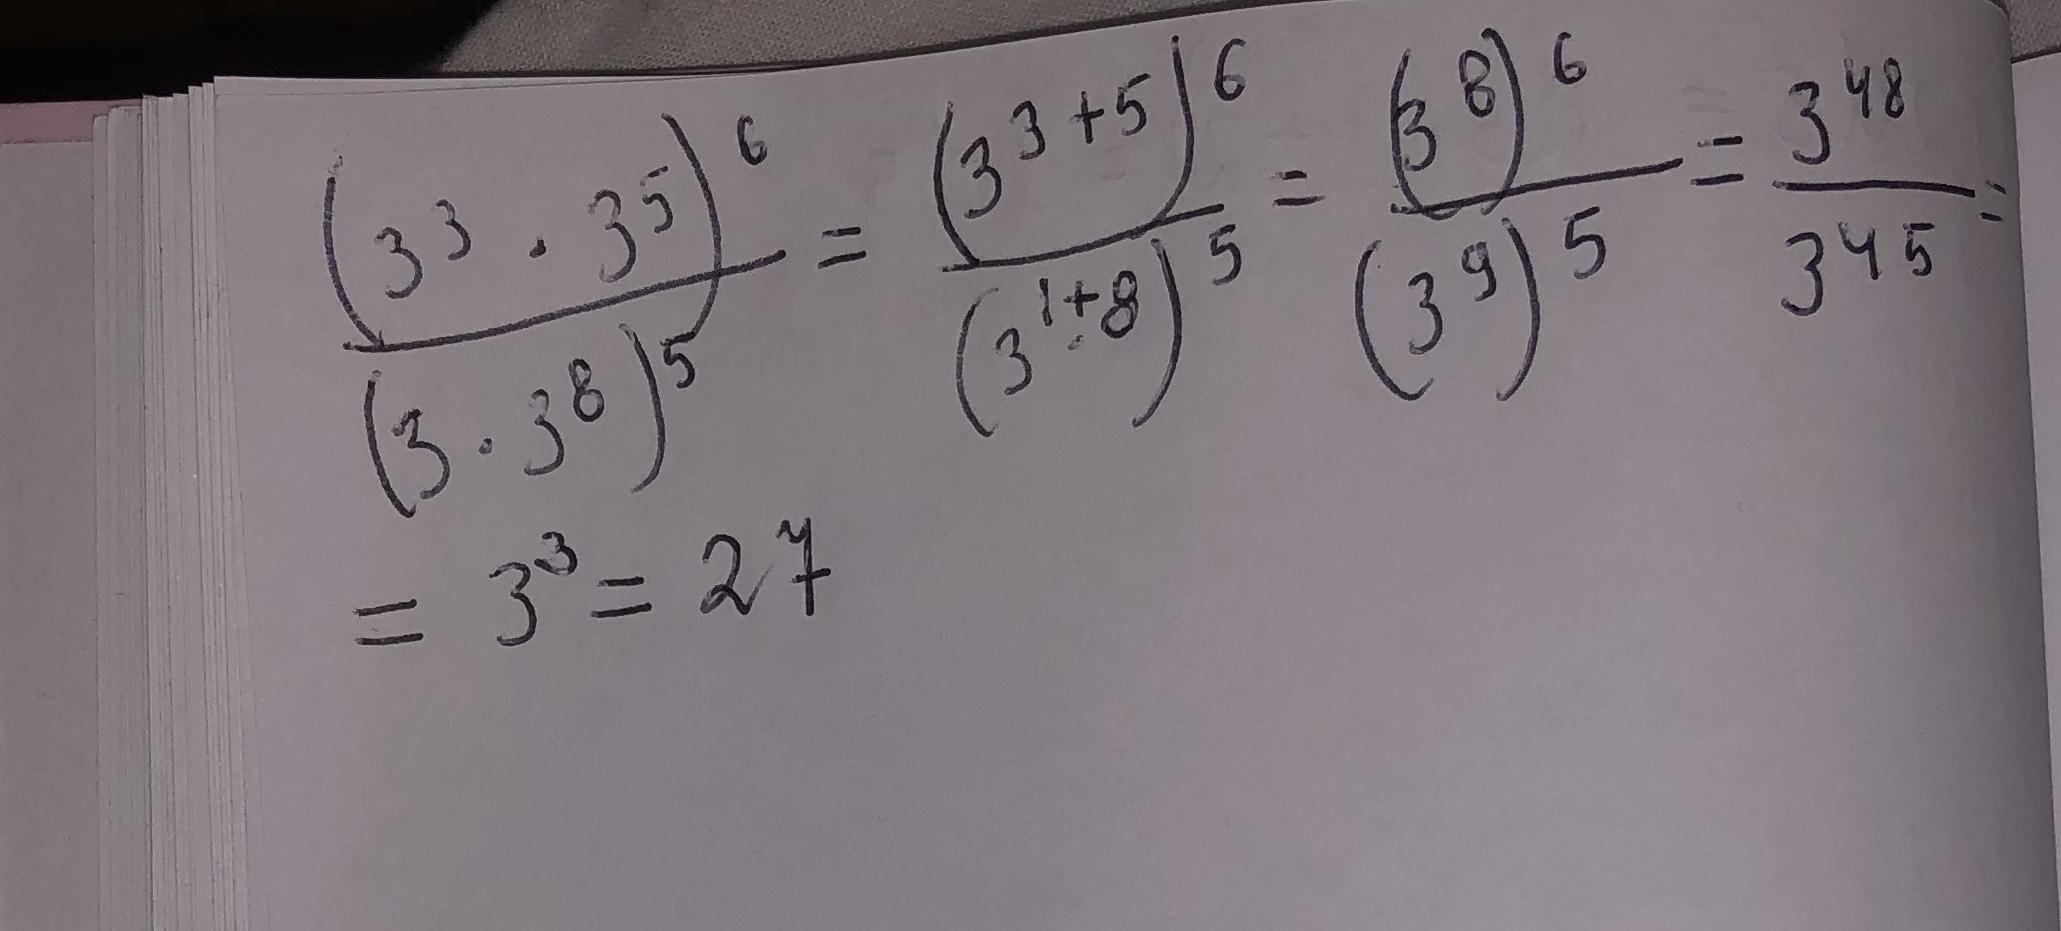 (3³ · 3⁵)⁶ / (3 · 3⁸)⁵ = (3³⁺⁵)⁶ / (3¹⁺⁸)⁵ = (3⁸)⁶ / (3⁹)⁵ = 3⁴⁸ / 3⁴⁵ =
= 3³ = 27